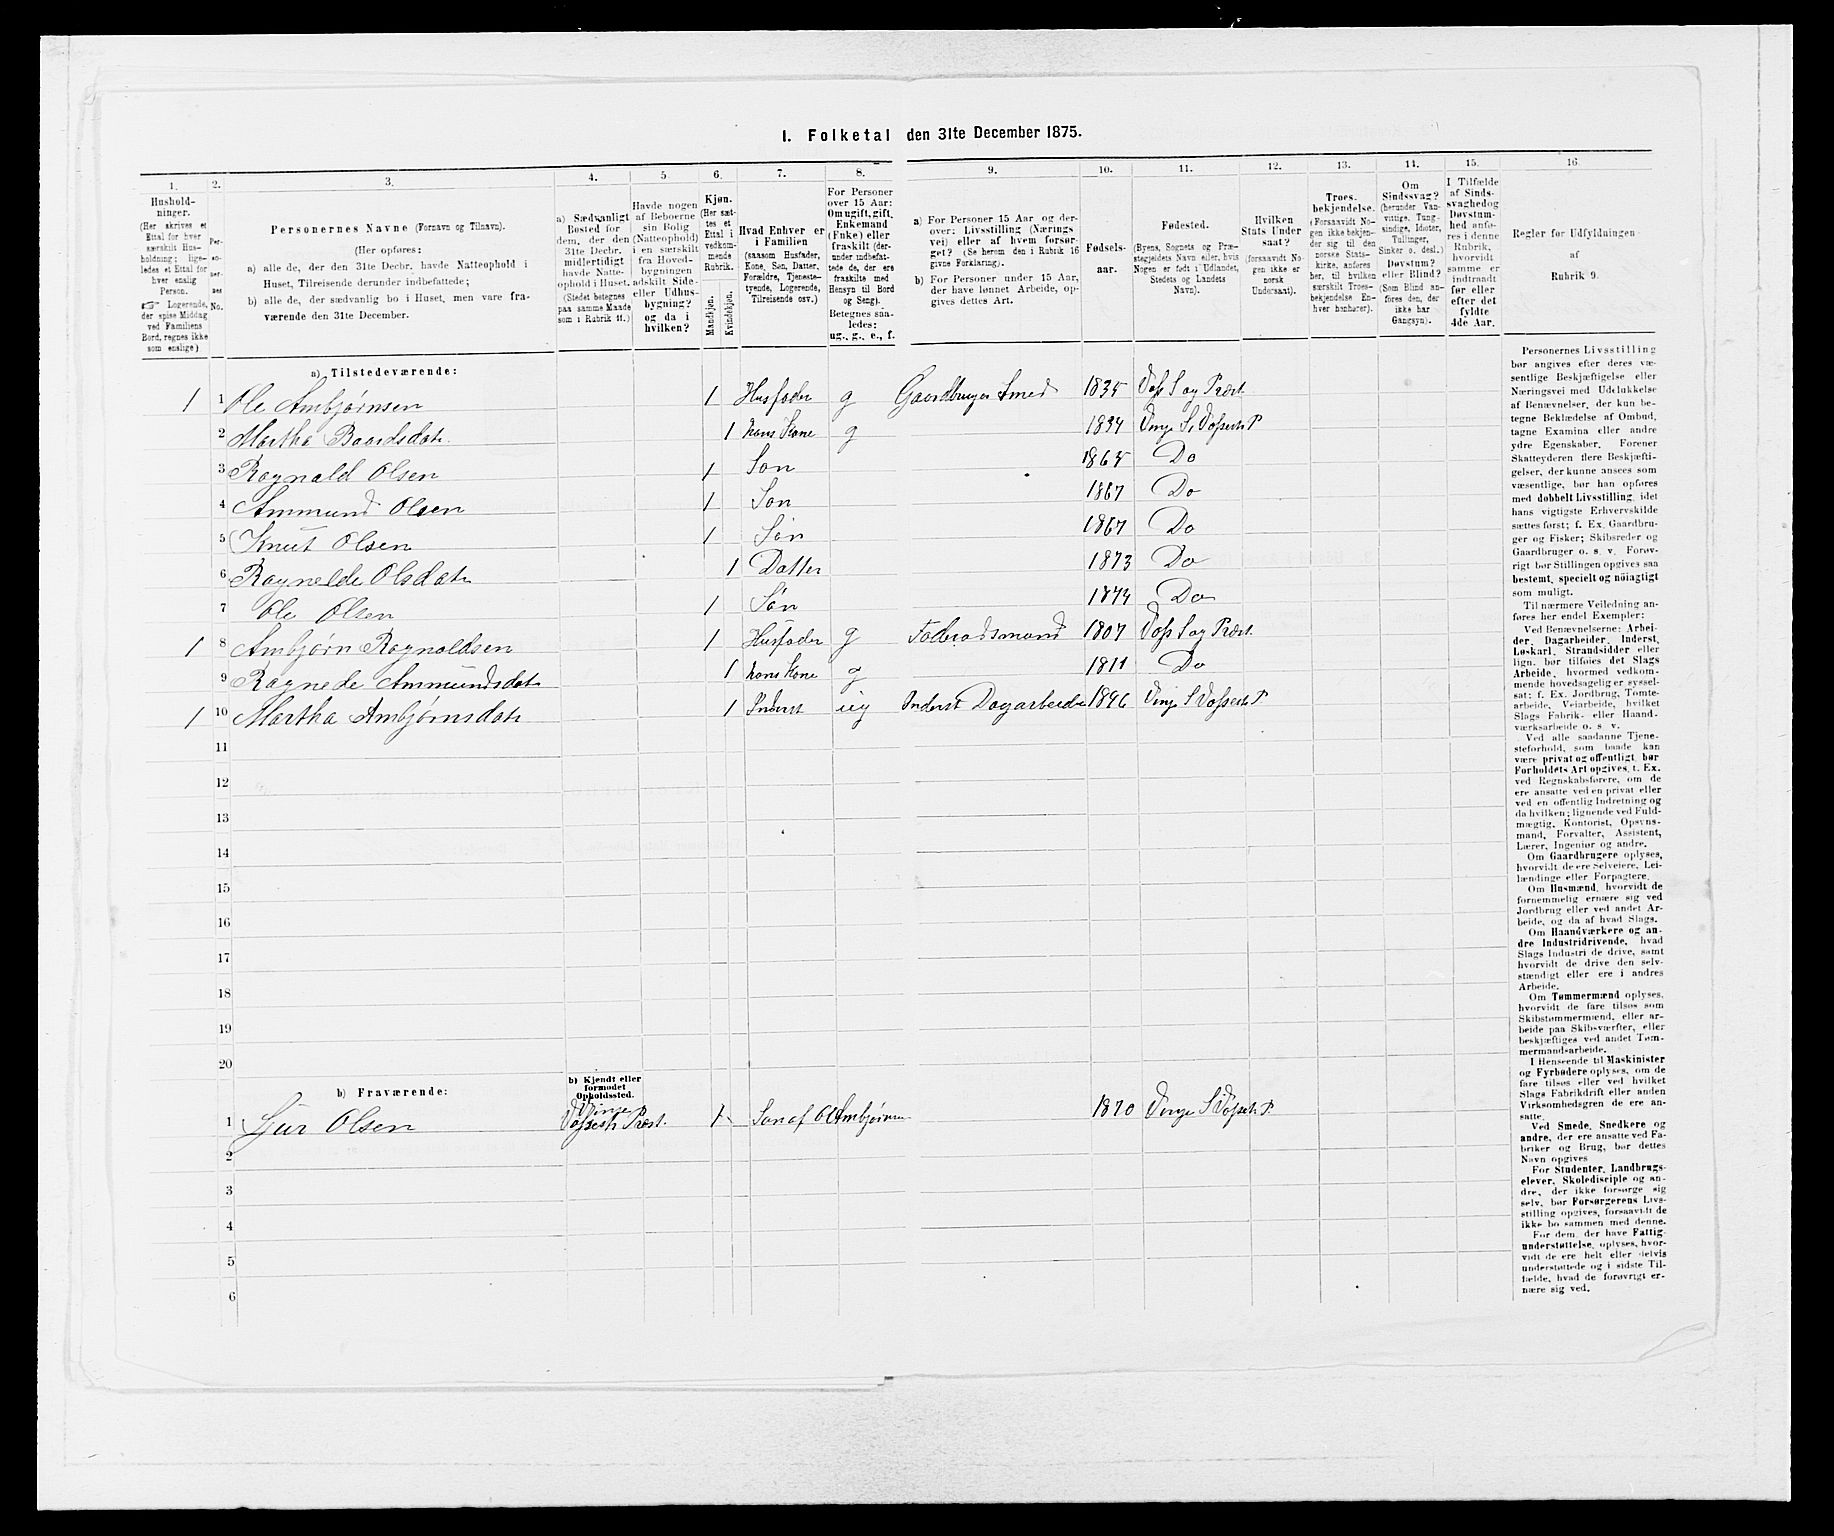 I. Folketal den 31te December 1875.
1. 2. 3. 4. 5 6. 7. 8. 9. 10. 11. 12. 13. 14. 15. 16.
Hushold-
ninger.
(Her skrives et
Ettal for hver
særskilt Hus-
holdning; lige-
ledes et Ettal for
hver enslig
Person.
☞ Logerende,
der spise Middag
ved Familiens
Bord, regnes ikke
som enslige)
Per-
so-
ner-
nes
No.
Personernes Navne (Fornavn og Tilnavn).
(Her opføres:
a) alle de, der den 31te Decbr. havde Natteophold i
Huset, Tilreisende derunder indbefattede;
b) alle de, der sædvanlig bo i Huset, men vare fra-
værende den 31te December.
a) Sædvanligt
Bosted for
dem, der den
31te Decbr.
midlertidigt
havde Natte-
ophold i Huset.
(Stedet betegnes
paa samme Maade
som i Rubrik 11.)
Havde nogen
af Beboerne
sin Bolig
(Natteophold)
i en særskilt
fra Hoved-
bygningen
adskilt Side-
eller Udhus-
bygning?
og da i
hvilken?
Kjøn.
(Her sæt-
tes et
Ettal i
vedkom-
mende
Rubrik.
Mandkjøn.
Kvindekjøn.
Hvad Enhver er
i Familien
(saasom Husfader,
Kone, Søn, Datter,
Forældre, Tjeneste-
tyende, Logerende,
Tilreisende osv.)
For Personer
over 15 Aar:
Om ugift, gift,
Enkemand
(Enke) eller
fraskilt (der-
under indbefat-
tede de, der ere
fraskilte med
Hensyn til Bord
og Seng).
Betegnes saa-
ledes:
ug., g., e., f.
a) For Personer 15 Aar og der-
over: Livsstilling (Nærings
vei) eller af hvem forsør-
get? (Se herom den i Rubrik 16
givne Forklaring).
b) For Personer under 15 Aar,
der have lønnet Arbeide, op-
gives dettes Art.
Fødsels-
aar.
Fødested.
(Byens, Sognets og Præ-
stegjeldets Navn eller, hvis
Nogen er født i Udlandet,
Stedets og Landets
Navn).
Hvilken
Stats Under
saat?
(forsaavidt No-
gen ikke er
norsk
Undersaat).
Troes-
bekjendelse.
(Forsaavidt No-
gen ikke bekjen-
der sig til den
norske Stats-
kirke, anføres
her, til hvilken
særskilt Troes-
bekjendelse En-
hver henhører).
Om
Sindssvag?
(herunder Van-
vittige, Tung-
sindige, Idioter,
Tullinger,
Sinker o. desl.)
Døvstum?
eller Blind?
(Som Blind an-
føres den, der
ikke har
Gangsyn).
I Tilfælde
af Sinds-
svaghed og
Døvstum-
hed anfø-
res i denne
Rubrik,
hvorvidt
samme er
indtraadt
før eller
efter det
fyldte
4de Aar.
Regler for Udfyldningen
af
Rubrik 9.
a) Tilstedeværende:
1 1 Ole Ambjørnsen 1 Husfader g Gaardbruger Smed 1835 Voss S og Præst.
2 Martha Baardsdatr. 1 hans Kone g 1834 Vinje S. Vossestr P
3 Ragnald Olsen 1 Søn 1865 Do
4 Ammund Olsen 1 Søn 1867 Do
5 Knut Olsen 1 Søn 1867 Do
6 Ragnelde Olsdatr 1 Datter 1873 Do
7 Ole Olsen 1 Søn 1874 Do
1 8 Ambjørn Ragnaldsen 1 Husfader g Føderaadsmand 1807 Voss S og Præst.
9 Ragnede Ammundsdatr 1 hans Kone g 1811 Do
1 10 Martha Ambjørnsdatr 1 Inderst ug Inderst Dagarbeider 1846 Vinje S Vossestr P.
11
12
13
14
15
16
17
18
19
20
b) Fraværende:
b) Kjendt eller
formodet
Opholdssted.
1 Sjur Olsen Vinje Vossestr Præst. 1 Søn af Ol Ambjørnsen 1870 Vinje S Vossestr P.
2
3
4
5
6
Personernes Livsstilling
bør angives efter deres væ-
sentlige Beskjæftigelse eller
Næringsvei med Udelukkelse
af Benævnelser, der kun be-
tegne Beklædelse af Ombud,
tagne Examina eller andre
ydre Egenskaber. Forener
Skatteyderen flere Beskjæfti-
gelser, der kunne ansees som
væsentlige, bør han opføres
med dobbelt Livsstilling, idet
hans vigtigste Erhvervskilde
sættes først; f. Ex. Gaardbru-
ger og Fisker; Skibsreder og
Gaardbruger o. s. v. Forøv-
rigt bør Stillingen opgives saa
bestemt, specielt og nøiagtigt
som muligt.
Til nærmere Veiledning an-
føres her endel Exempler:
Ved Benævnelserne: Arbei-
der, Dagarbeider, Inderst,
Løskarl, Strandsidder eller
lign. bør tilføies det Slags
Arbeide, hvormed vedkom-
mende hovedsagelig er syssel-
sat; f. Ex. Jordbrug, Tømte-
arbeide, Veiarbeide, hvilket
Slags Fabrik- eller Haand-
værksarbeide o. s. v.
Ved alle saadanne Tjene-
steforhold, som baade kan
være privat og offentligt, bør
Forholdets Art opgives, t. Ex.
ved Regnskabsførere, om de
ere ansatte ved en privat eller
ved en offentlig Indretning og
da hvilken; lignende ved Fuld-
mægtig, Kontorist, Opsyns-
mand, Forvalter, Assistent,
Lærer, Ingeniør og andre.
Om Gaardbrugere oplyses,
hvorvidt de ere Selveiere, Lei-
lændinge eller Forpagtere.
Om Husmænd, hvorvidt de
fornemmelig ernære sig ved
Jordbrug eller ved andet Ar-
beide, og da af hvad Slags.
Om Haandværkere og an-
dre Industridrivende, hvad
Slags Industri de drive, samt
hvorvidt de drive den selv-
stændigt eller ere i andres
Arbeide.
Om Tømmermænd oplyses,
hvorvidt de fare tilsøs som
Skibstømmermænd, eller ar-
beide paa Skibsværfter, eller
beskjæftiges ved andet Tøm-
mermandsarbeide.
I Henseende til Maskinister
og Fyrbødere oplyses, om de
fare tilsøs eller ved hvilket
Slags Fabrikdrift eller anden
Virksomhedsgren de ere an-
satte.
Ved Smede, Snedkere og
andre, der ere ansatte ved Fa-
briker og Brug, bør dettes
Navn opgives
For Studenter, Landbrugs-
elever, Skoledisciple og an-
dre, der ikke forsørge sig
selv, bør Forsørgerens Livs-
stilling opgives, forsaavidt de
ikke bo sammen med denne.
For dem, der have Fattig-
understøttelse, oplyses, hvor-
vidt de ere helt eller delvis
understøttede og i sidste Til-
fælde, hvad de forøvrigt er-
nære sig ved.